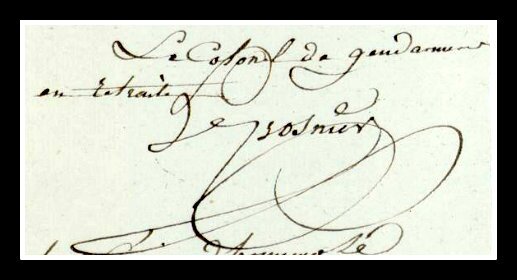 Le Colonel de gendarmerie
en retraite
Le Crosnier